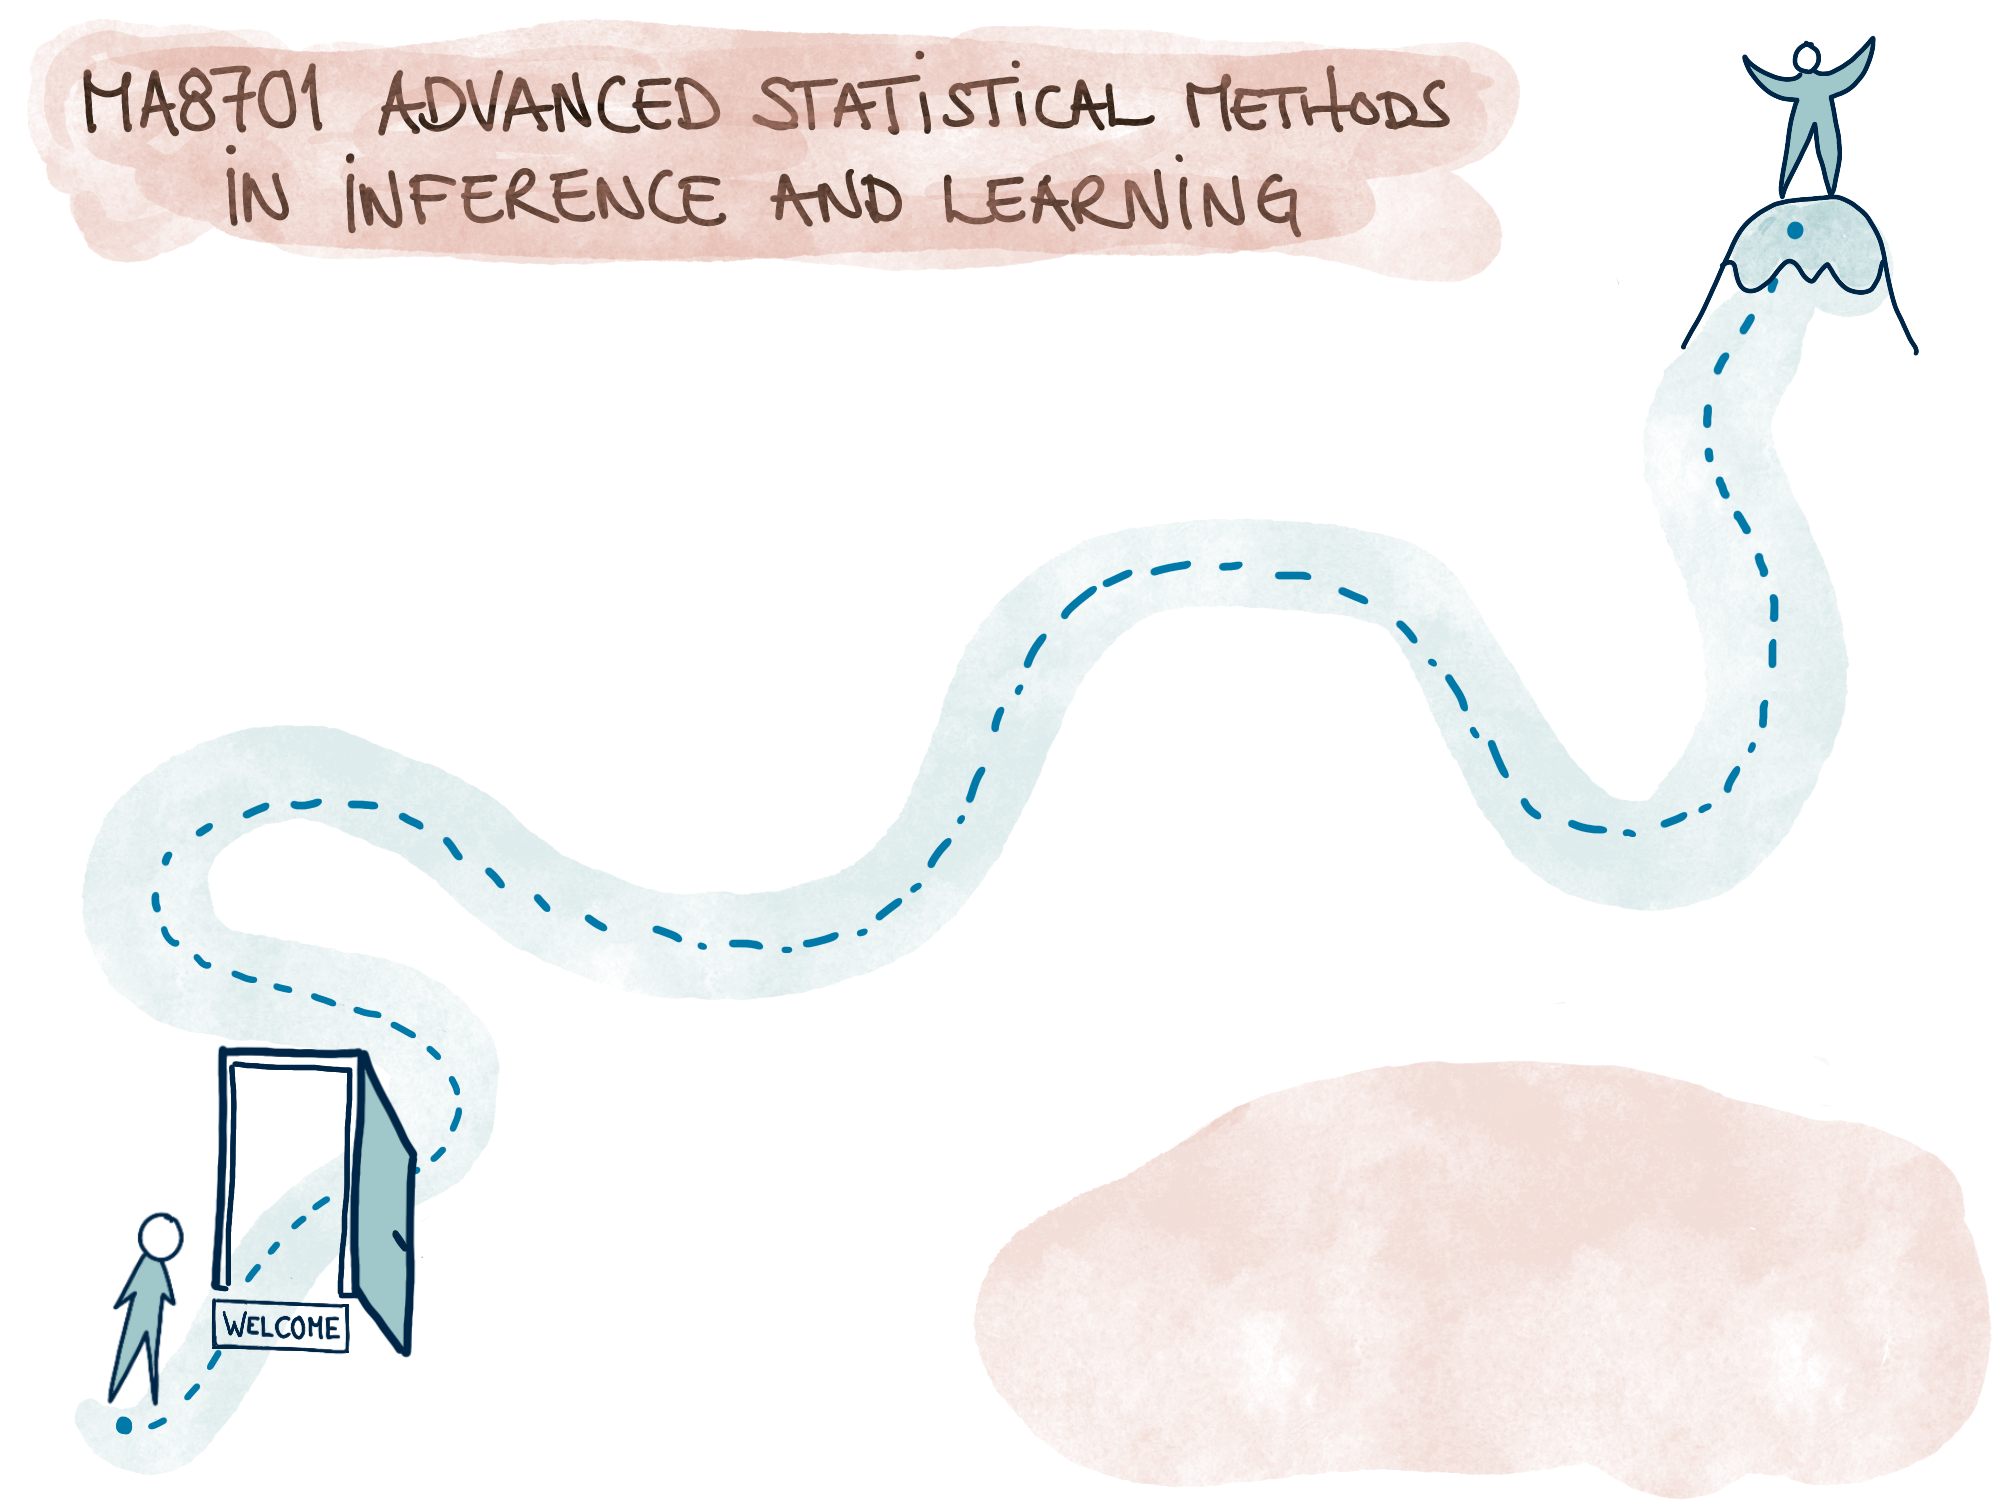 MA8701 ADVANCED STATISTICAL METHODS
IN INFERENCE AND LEARNING
WELCOME